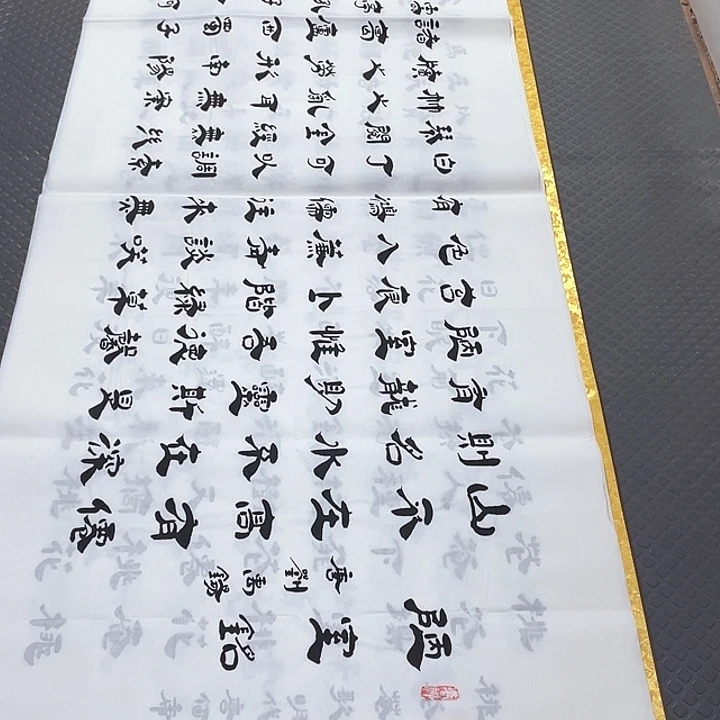 陋室銘
唐劉禹錫
山不在高有僊
則名水不在深
有龍則靈斯是
陋室惟吾德馨
苔痕上階綠草
色入簾青談笑
有鴻儒往來無
白丁可以調素
琴閱金經無絲
竹之亂耳無案
牘之勞形南陽
諸葛廬西蜀子